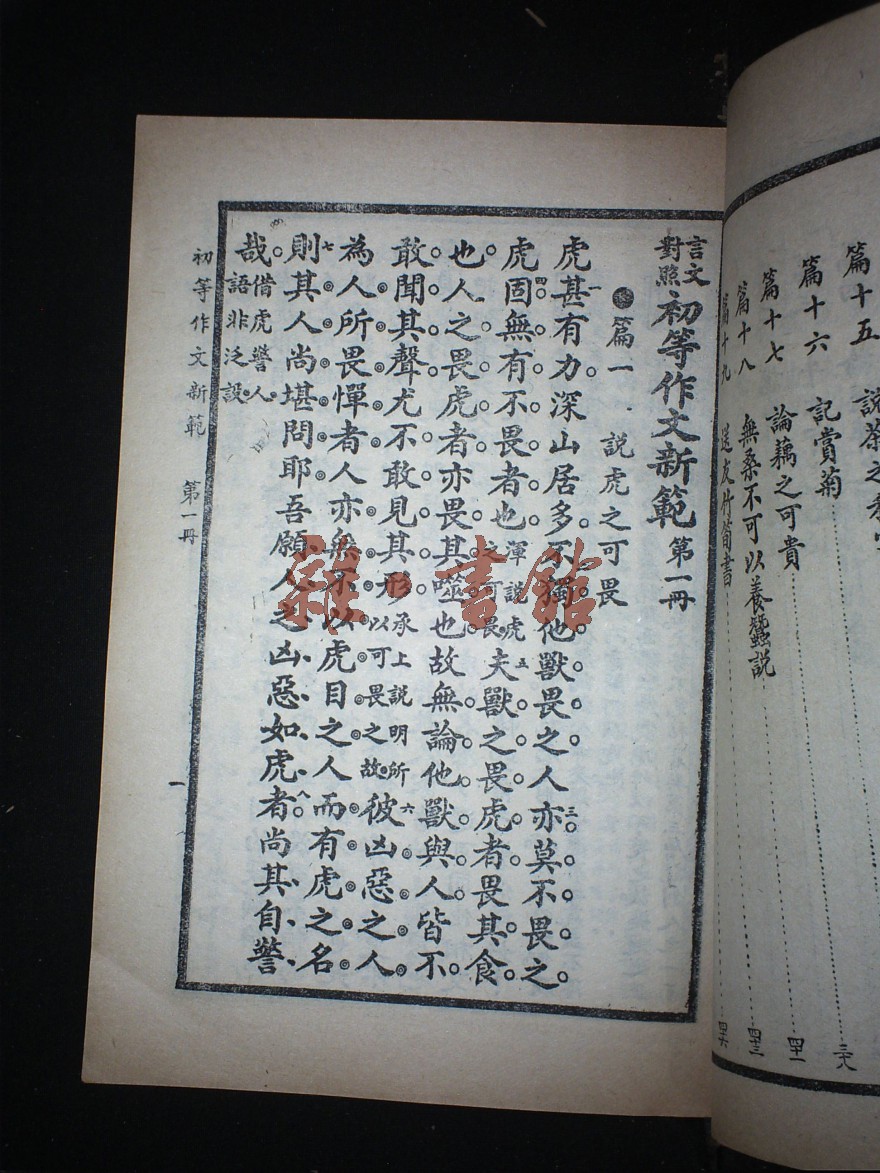 篇十五 說茶之
篇十六 記賞菊 三八
篇十七 論藕之可貴 四一
篇十八 無桑不可以養蠶說 四三
篇十九 送友竹筍書 四六
言文對照 初等作文新範 第一冊
篇一 說虎之可畏
一虎甚有力。深山居多。二不獨他獸畏之。三人亦莫不畏之。
四虎固無有不畏者也。渾說虎之可畏 五夫獸之畏虎者。畏其食
也。人之畏虎者。亦畏其噬也。故無論他獸與人。皆不
敢聞其聲。尤不敢見其形。承上說明所以可畏之故 六彼凶惡之人。
為人所畏憚者。人亦無不以虎目之。人而有虎之名。
七則其人尚堪問耶。吾願人之凶惡如虎者。八尚其自警
哉。借虎警人語非泛設
初等作文新範 第一冊 一
雜·書館